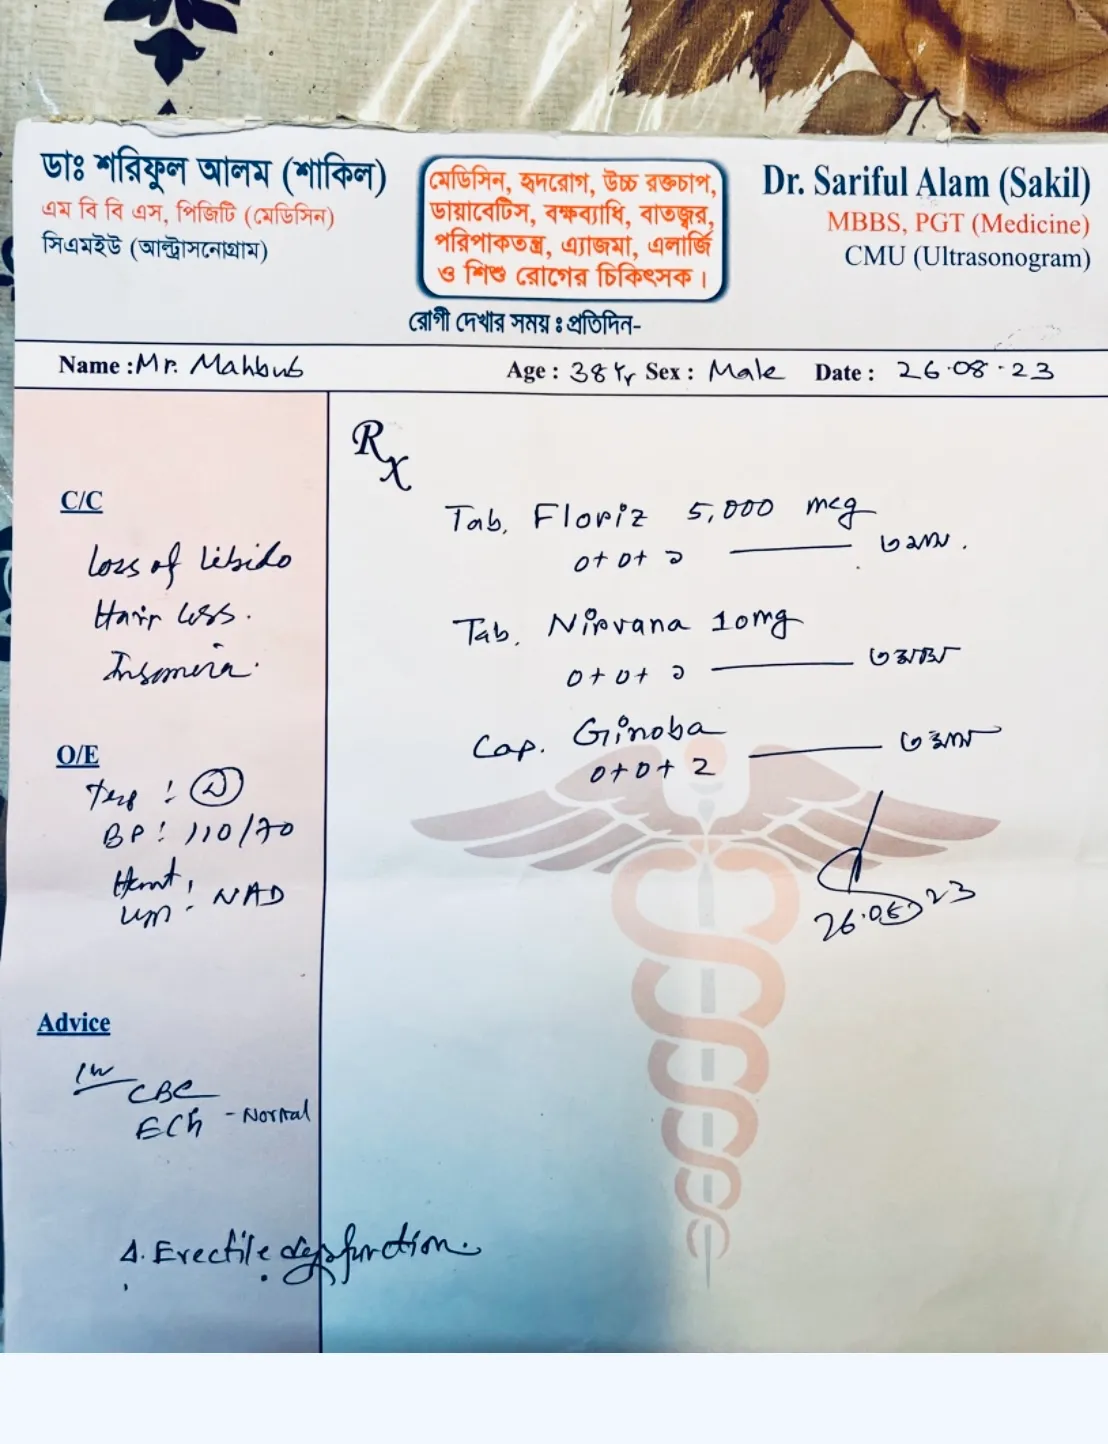 ডাঃ শরিফুল আলম (শাকিল)
এম বি বি এস, পিজিটি (মেডিসিন)
সিএমইউ (আল্ট্রাসনোগ্রাম)
মেডিসিন, হৃদরোগ, উচ্চ রক্তচাপ,
ডায়াবেটিস, বক্ষব্যাধি, বাতজ্বর,
পরিপাকতন্ত্র, এ্যাজমা, এলার্জি
ও শিশু রোগের চিকিৎসক।
রোগী দেখার সময়ঃ প্রতিদিন-
Dr. Sariful Alam (Sakil)
MBBS, PGT (Medicine)
CMU (Ultrasonogram)
Name : Mr. Mahbub Age : 38 Yr Sex : Male Date : 26.08.23
C/C
Loss of Libido
Hair loss.
O/E
BP: 110/70
NAD
Advice
CBC
- Normal
Δ. Erectile dysfunction.
Rx
Tab. Floriz 5,000 mcg
0+0+১ ৩ মাস.
Tab. Nirvana 10mg
0+0+১ ৩ মাস
Cap. Ginoba
0+0+2 ৩ মাস